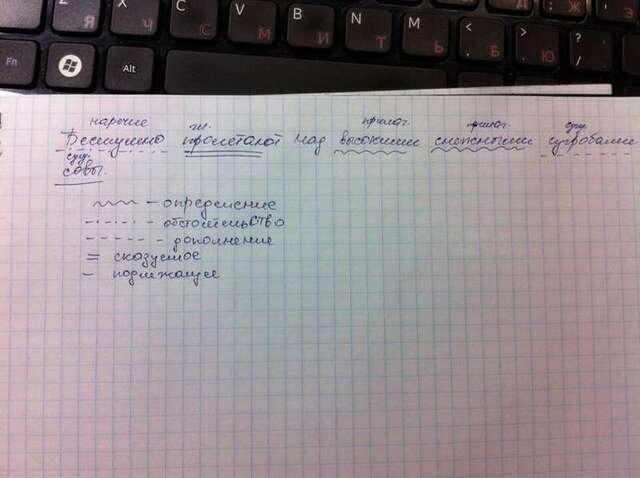 Z Я X Ч C С V М B И N Т M Ь < , Б > . Ю ? /
Fn Alt
наречие гл. прилаг. прилаг. сущ.
Бесшумно пролетают над высокими снежными сугробами
сущ.
совы.
— определение
— обстоятельство
— дополнение
= сказуемое
– подлежащее